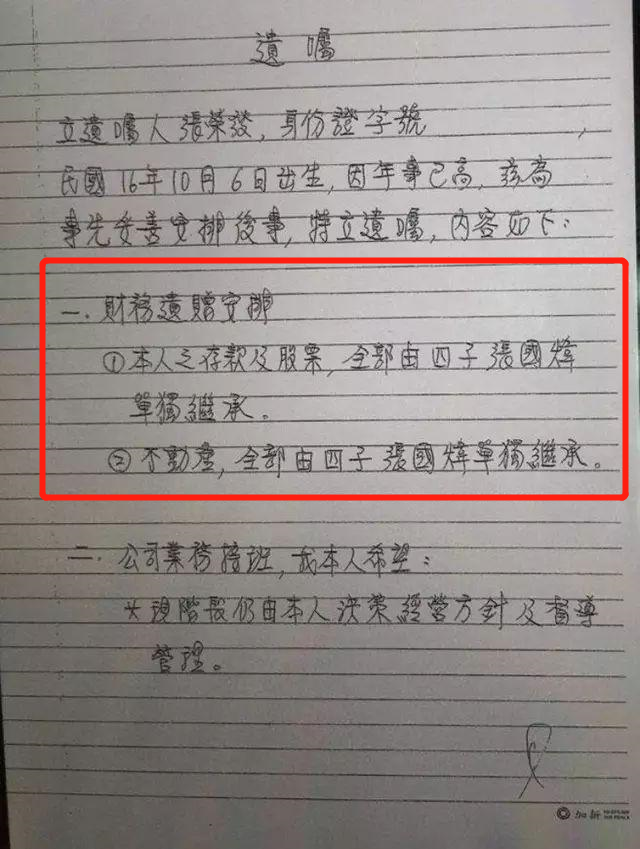 遺囑
立遺囑人張榮發，身份證字號 ，
民國16年10月6日出生，因年事已高，茲為
事先妥善安排後事，特立遺囑，內容如下：
一．財務遺贈安排
①本人之存款及股票，全部由四子張國煒
單獨繼承。
②不動產，全部由四子張國煒單獨繼承。
二．公司業務接班，我本人希望：
*現階段仍由本人決策經營方針及督導
管理。
加新